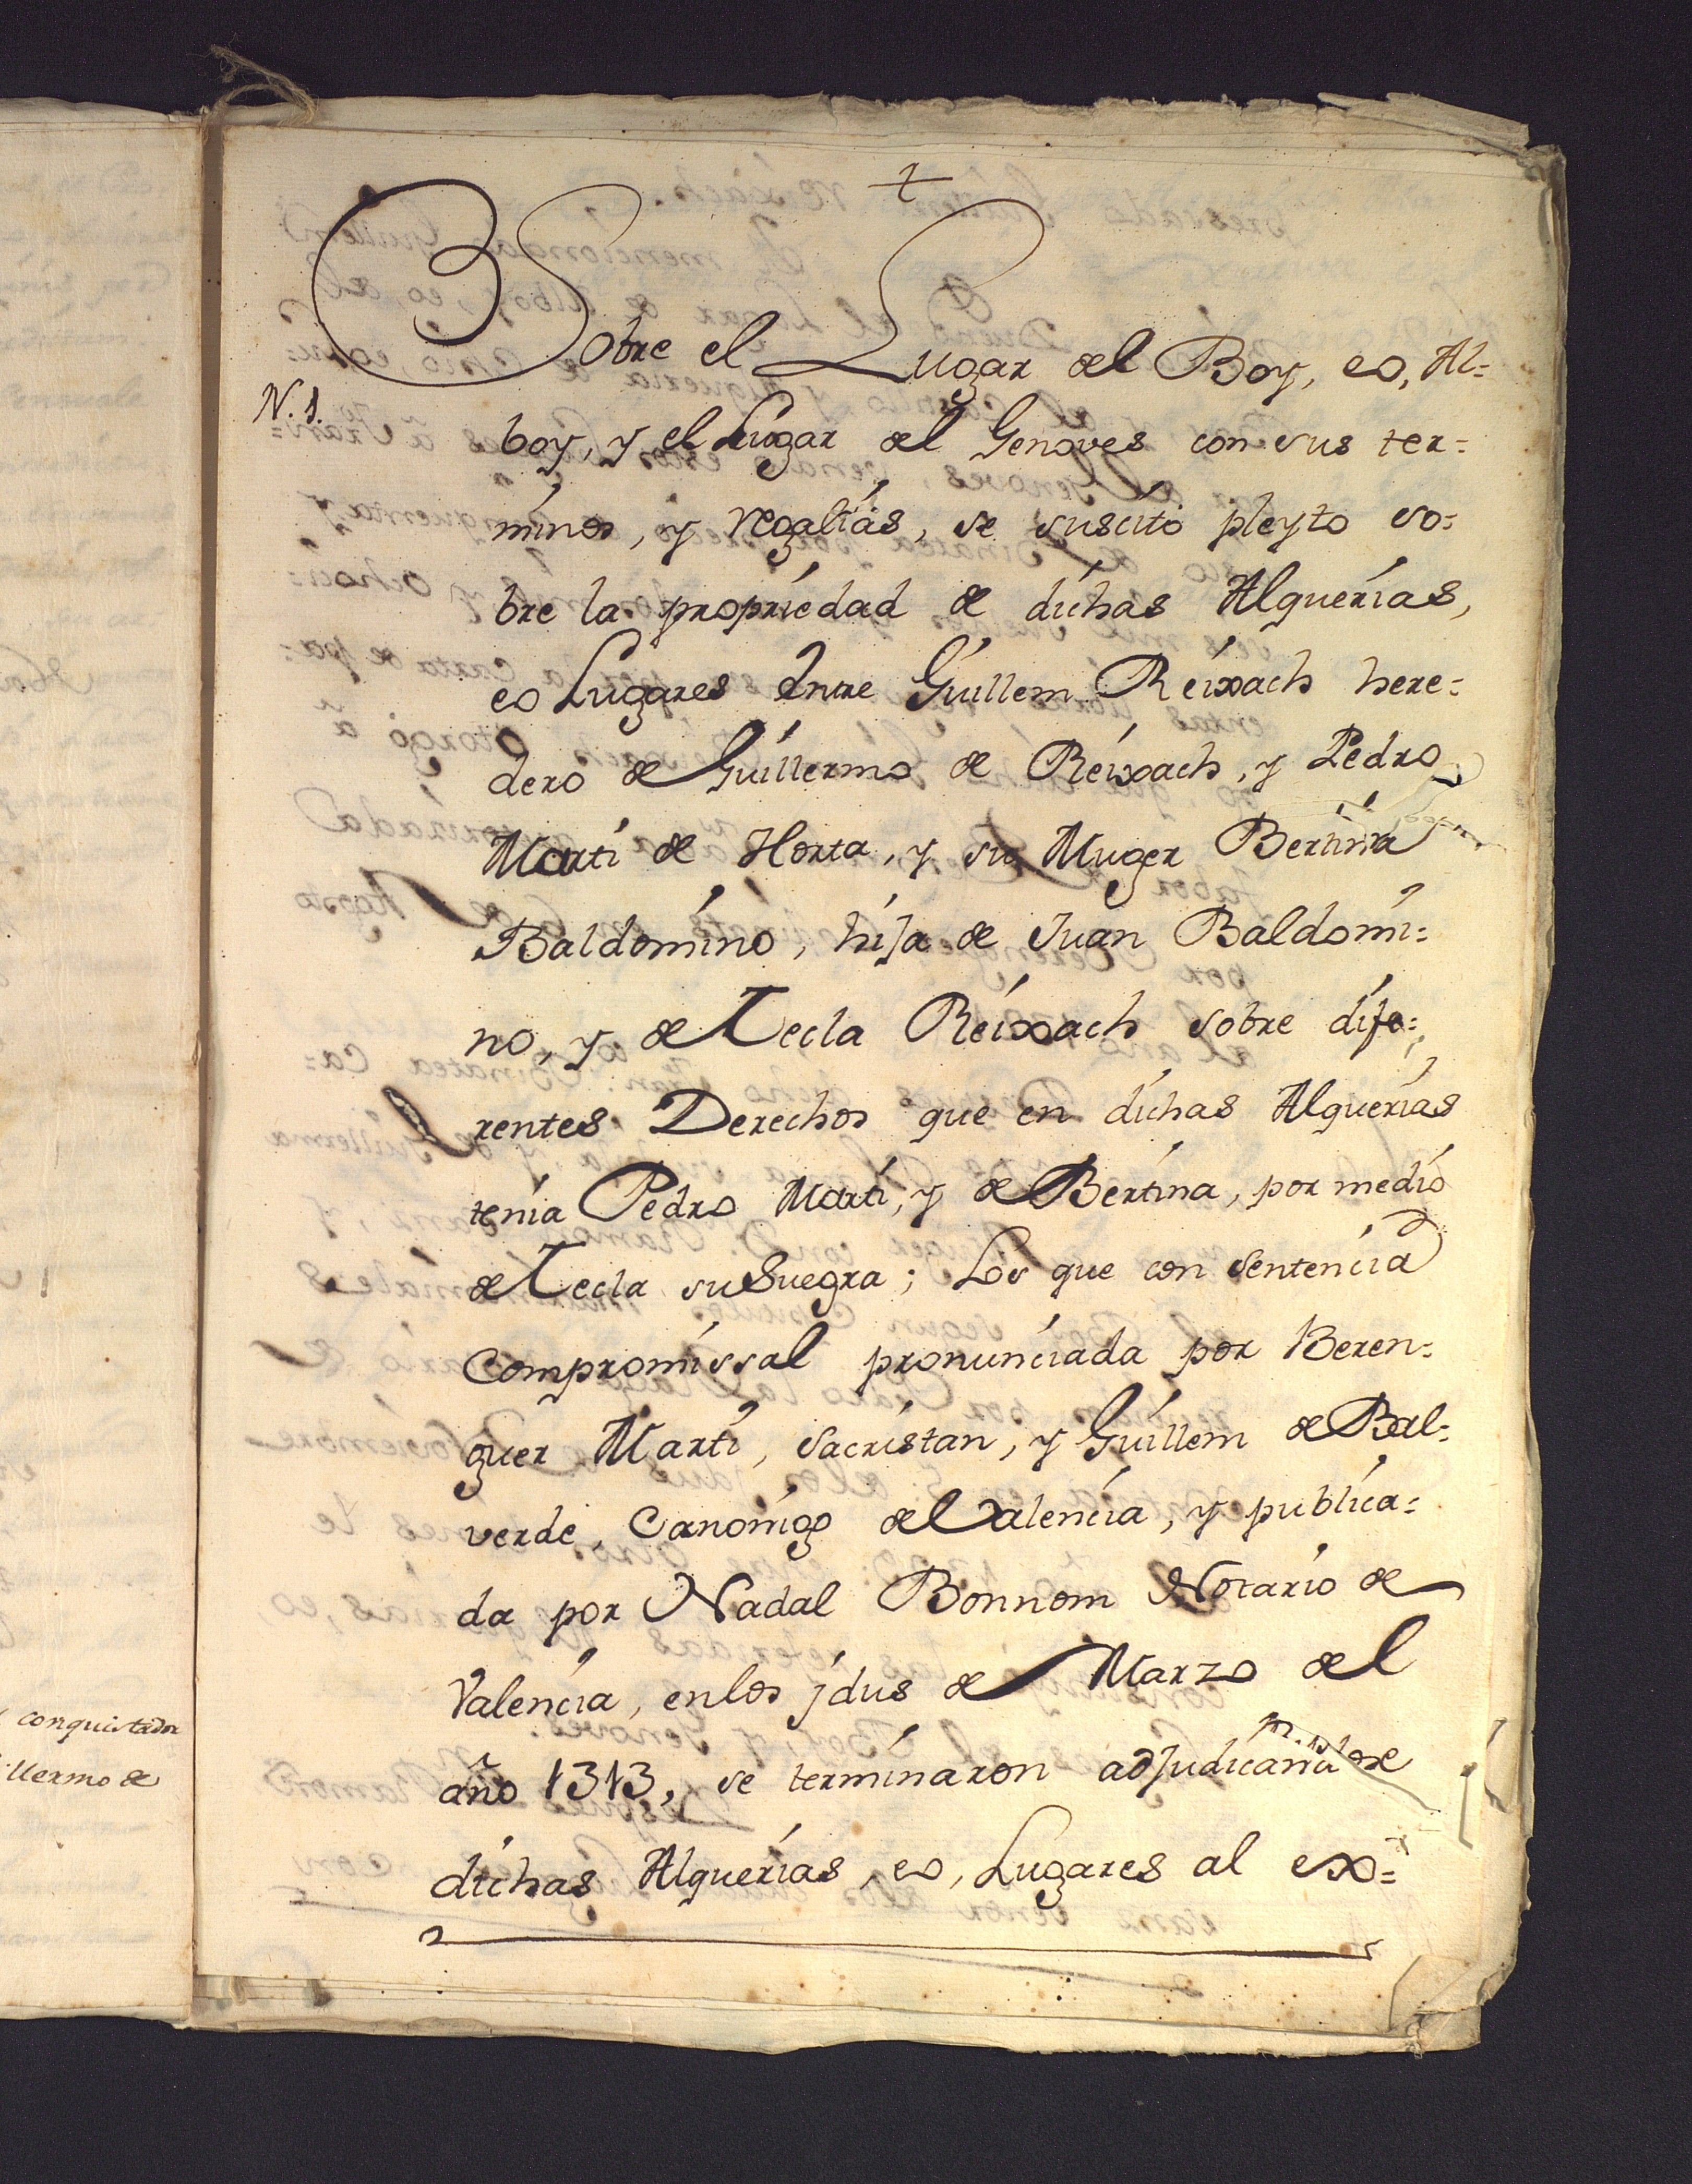 +
Sobre el Lugar del Boy, eo, Al=
N. 1.
boy, y el Lugar del Genoves con sus ter=
minos, y regalías, se suscitó pleyto so=
bre la propriedad de dichas Alquerías,
eo Lugares Entre Guillem Reixach here=
dero de Guillermo de Reixach, y Pedro
Martí de Horta, y su Muger Bertina
Baldomino, hija de Juan Baldomi=
no, y de Tecla Reixach sobre dife=
rentes Derechos que en dichas Alquerías
tenia Pedro Martí, y de Bertina, por medio
de Tecla su Suegra; Los que con sentencia
Compromissal pronunciada por Beren=
guer Martí, Sacristan, y Guillem de Bal=
verde, Canonigo de Valencia, y publica=
da por Nadal Bonnom Notario de
Valencia, en los jdus de Marzo del
año 1313, se terminaron adjudicando se
dichas Alquerías, eo, Lugares al ex=
conquistador
llermo de